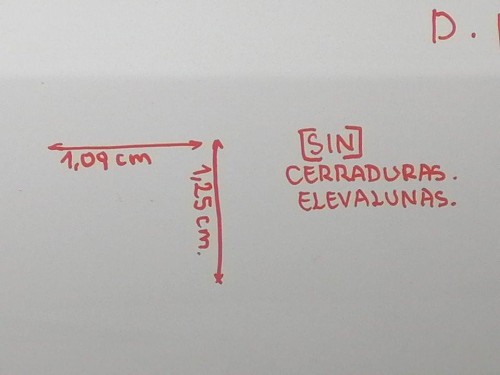 D.
1,09 cm
1,25 cm.
[SIN]
CERRADURAS.
ELEVALUNAS.